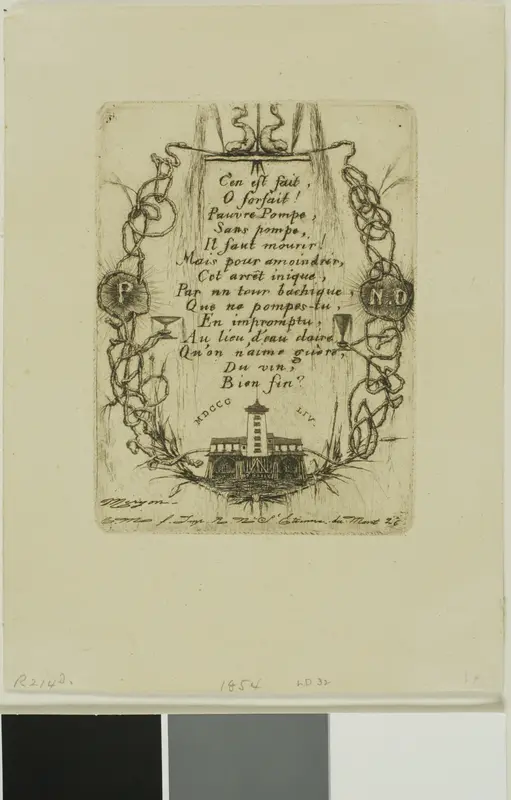 C'en est fait,
O forfait!
Pauvre Pompe,
Sans pompe,
Il faut mourir!
Mais pour amoindrir,
Cet arrêt inique,
Par un tour bachique,
Que ne pompes-tu,
En impromptu,
Au lieu d'eau claire
Qu'on n'aime guère,
Du vin,
Bien fin?
P
N.D
MDCCC LIV.
Meryon
Imp. R. Ne. St. Etienne du Mont 26
R 2142.
1854
LD 32